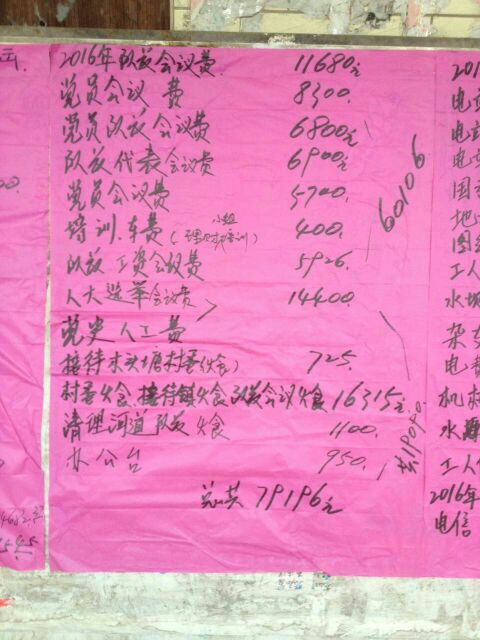 2016年队政会议费 11680元
党员会议 费 8300.
党员队政会议费 6800元
队政代表会议费 6900元
党员会议费 5700.
培训.车费(小组理财培训) 400.
队政工资会议费 5926.
人大选举会议费 14400.
60106
党史人工费
接待水头塘村委(伙食) 725.
村委伙食.接待镇伙食.队政会议伙食 16315元
清理河道队员伙食 1100.
办公台 950.
共19090.
总共 79196元
201
电
电
电
国
地
图
工人
水
杂
电费
机
水
工人
2016年
电信